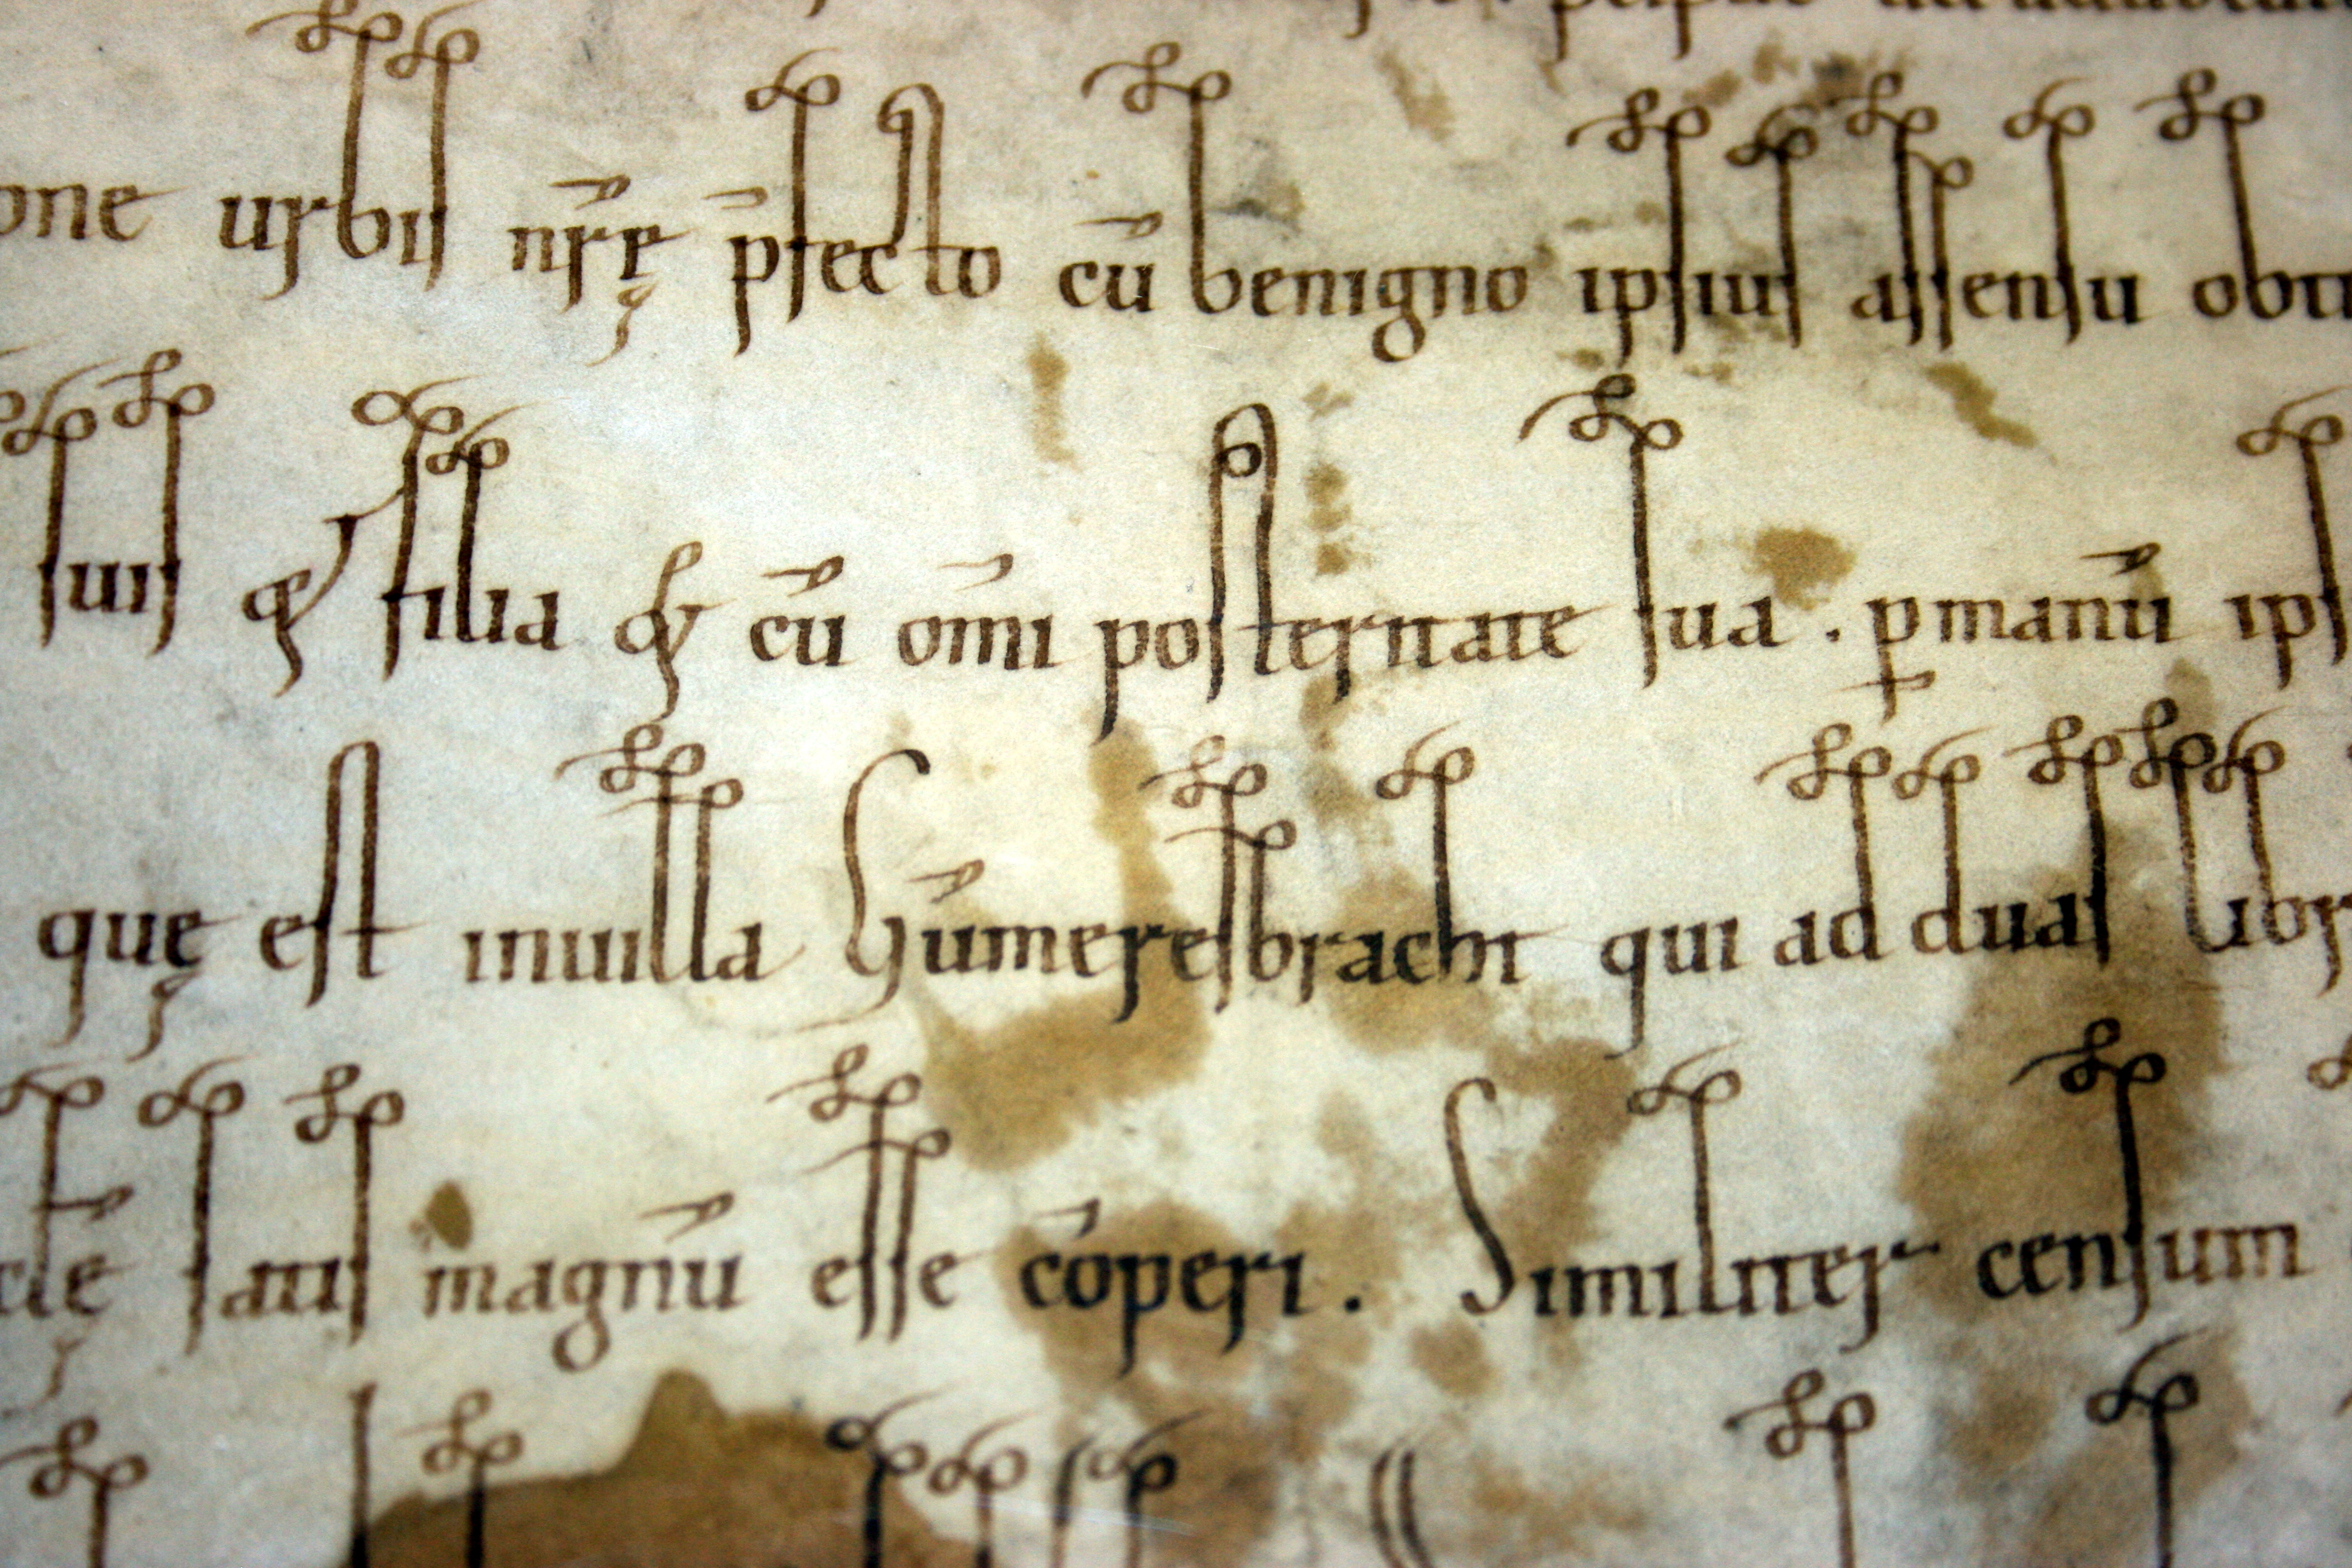 urbis nr̄ę p̄fecto cū benigno ipsius assensu
suis & filia & cū om̄i posternate sua . ꝑmanū
quę est inuilla Gūmeresbracht qui ad duas
satis magnū esse cōperi . Similiter censum